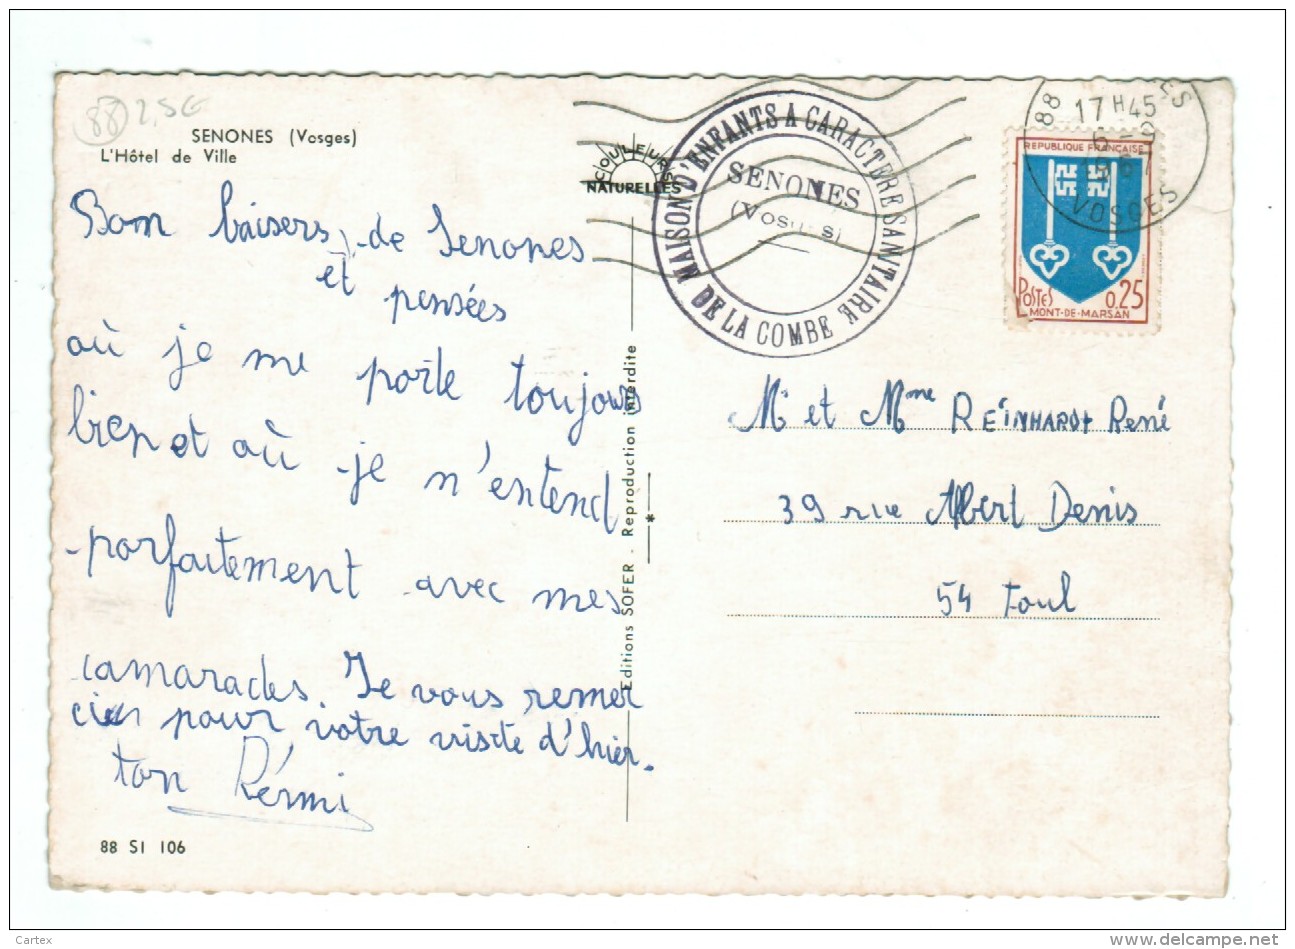 88 2,5€
SENONES (Vosges)
L'Hôtel de Ville
COULEURS
NATURELLES
MAISON D'ENFANTS A CARACTERE SANITAIRE
DE LA COMBE
SENONES
(Vosges)
88
17 H 45
VOSGES
REPUBLIQUE FRANÇAISE
POSTES
0,25
MONT-DE-MARSAN
Bom baisers, de Senones
et pensées
où je me porte toujours
bien et où je n'entend
parfaitement avec mes
camarades. Je vous remer
cier pour votre visite d'hier.
ton Rémi
88 SI 106
Editions SOFER - Reproduction interdite
M. et Mme REINHARDT René
39 rue Albert Denis
54 toul
Cartex
www.delcampe.net